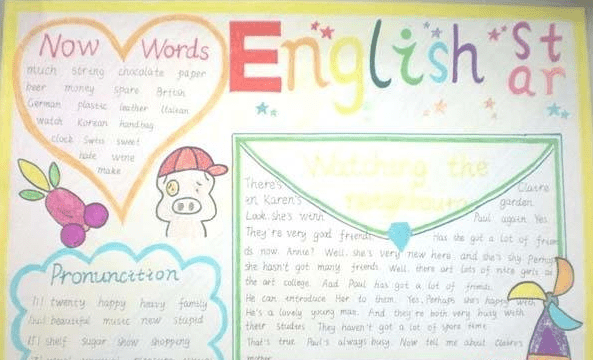 Now Words
much string chocolate paper
beer money spare British
German plastic leather Italian
watch Korean handbag
clock Swiss sweet
hate wine
make
English Star
Watching the
neighbours
There's Claire
in Karen's garden.
Look, she's with Paul again. Yes.
They're very good friends. Has she got a lot of frien
ds now, Annie? Well, she's very new here, and she's shy. Perhaps
she hasn't got many friends. Well, there are lots of nice girls at
the art college. And Paul has got a lot of friends.
He can introduce Her to them. Yes, Perhaps she's happy with
He's a lovely young man. And they're both very busy with
their studies. They haven't got a lot of spare time.
That's true. Paul's always busy. Now tell me about Claire's
mother
Pronunciation
twenty happy heavy family
beautiful music new stupid
shelf sugar show shopping